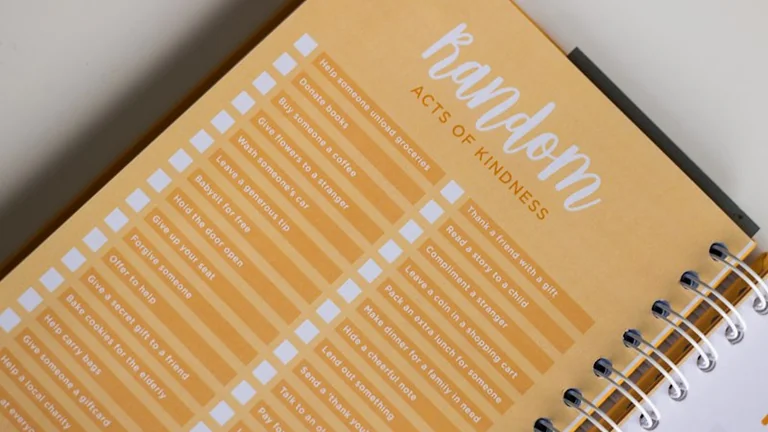 Random
ACTS OF KINDNESS
Help someone unload groceries
Donate books
Buy someone a coffee
Give flowers to a stranger
Wash someone's car
Leave a generous tip
Babysit for free
Hold the door open
Give up your seat
Forgive someone
Offer to help
Give a secret gift to a friend
Bake cookies for the elderly
Help carry bags
Give someone a giftcard
Help a local charity
at everyone
Thank a friend with a gift
Read a story to a child
Compliment a stranger
Leave a coin in a shopping cart
Pack an extra lunch for someone
Make dinner for a family in need
Hide a cheerful note
Lend out something
Send a 'thank you'
Talk to an
Pay for